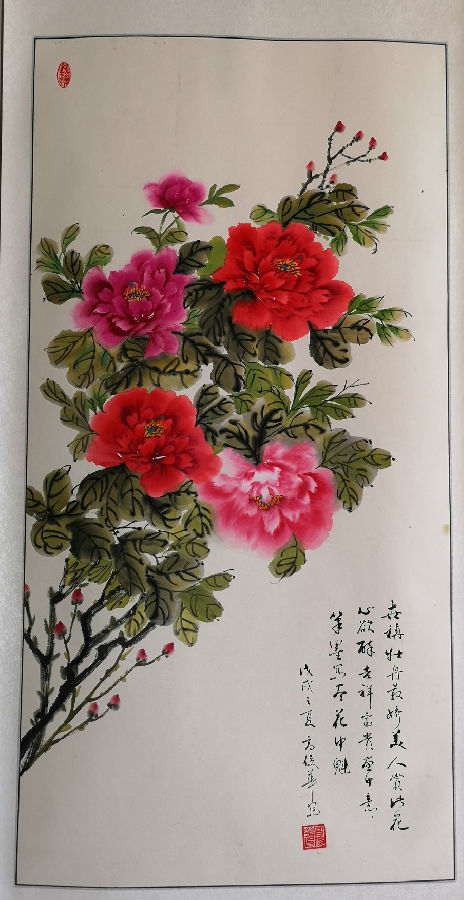 稱牡丹最娇美人賞此花
心欲醉吉祥富贵画中意
笔墨写尽花中魁
戊戌之夏方